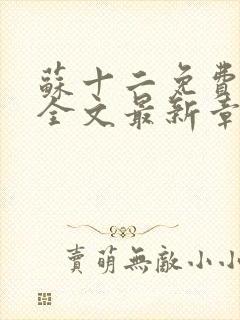 蘇十二免費
全文最新章
賣萌無敵小小